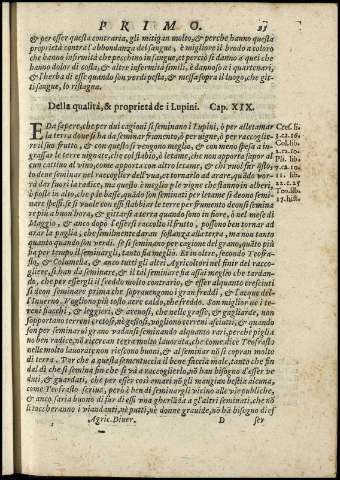 PRIMO. 25
& per esser questa contraria, gli mitigan molto, & perche hanno questa
proprietà contra l'abbondanza del sangue, è migliore il brodo a coloro
che hanno infirmità che pecchino in sangue, et perciò si danno a quei che
hanno dolor di costa, & altre infermità simili, è dannoso a i quartanarij,
& l'herba di esse quando son verdi pesta, & messa sopra il luogo, che git-
ti sangue, lo ristagna.
Della qualità, & proprietà de i Lupini. Cap. XIX.
E Da sapere, che per due cagioni si seminano i Lupini, ò per alletamar
la terra doue si ha da seminar frumento, ò per vigne, ò per raccoglie-
re il suo frutto, & con questo si vengono meglio, & con meno spesa a in-
grassar le terre vignate, che col stabio, ò letame, che non apporta sapor al
cun cattiuo al vino, come apporta con altro letame, & chi vuol far questo
lo dene seminar nel raccoglier dell'vua, et tornarlo ad arare, quãdo vor
rà dar fuori la radice, ma questo è meglio p le vigne che stanno in alberi,
ò poste in alto, che p le basse, quãdo son seminati per letame si deono semi
nare spessi, & se si vuole con essi stabbiar le terre per frumento deonsi semina
re più a buon hora, & gittarsi a terra quando sono in fiore, ò nel mese di
Maggio, & anco dopò l'essersi raccolto il frutto, possono ben tornar ad
arar la paglia, che similmente daran sostanza alla terra, ma non tanto
quanto quando son verdi. se si seminano per cagione del grano, quãto più
pa per tempo il seminargli, tanto fia meglio. Et in oltre, secondo Teofra-
sto, & Columella, & anco tutti gli altri Agricoltori nel finir del racco-
gliere, si han da seminare, & il tal seminare fia assai meglio che tardan-
do, che per essergli il freddo molto contrario, & esser alquanto cresciuti
si deon seminare prima che soprauengono i gran freddi, & l'acque del-
l'Inuerno. Vogliono più tosto aere caldo, che freddo. Son miglior ne i ter-
reni fiacchi, & leggieri, & arenosi, che nelle grasse, & gagliarde, non
sopportano terreni cretosi, nè gessosi, vogliono terreni asciutti, & quando
son per seminarsi grano vadansi auanzando alquanto rari, perche piglia
no ben radice, nõ ricercan terra molto lauorata, che come dice Teofrasto
nelle molto lauorate non riescono buoni, & al seminar nõ si copran molto
di terra. Par che a questa sementuccia il bene faccia male, tanto che fin
dal dì che si semina fin che si và a raccogliendo, nõ han bisogno d'esser ve
duti, & guardati, che per esser così amari nõ gli mangian bestia alcuna,
come Teofrasto scriue, però è ben di seminargli vicino alle vie publiche,
& anco saria buono di far di essi vna gherlãda a gl'altri seminati, che nõ
li toccheranno i viandanti, nè putti, nè donne grauide, nõ hà bisogno di es
Agric. Diuer. D ser
Cresc. li.
2. ca. 16.
Col. lib.
2. ca. 10.
Pli. lib.
17. hist.